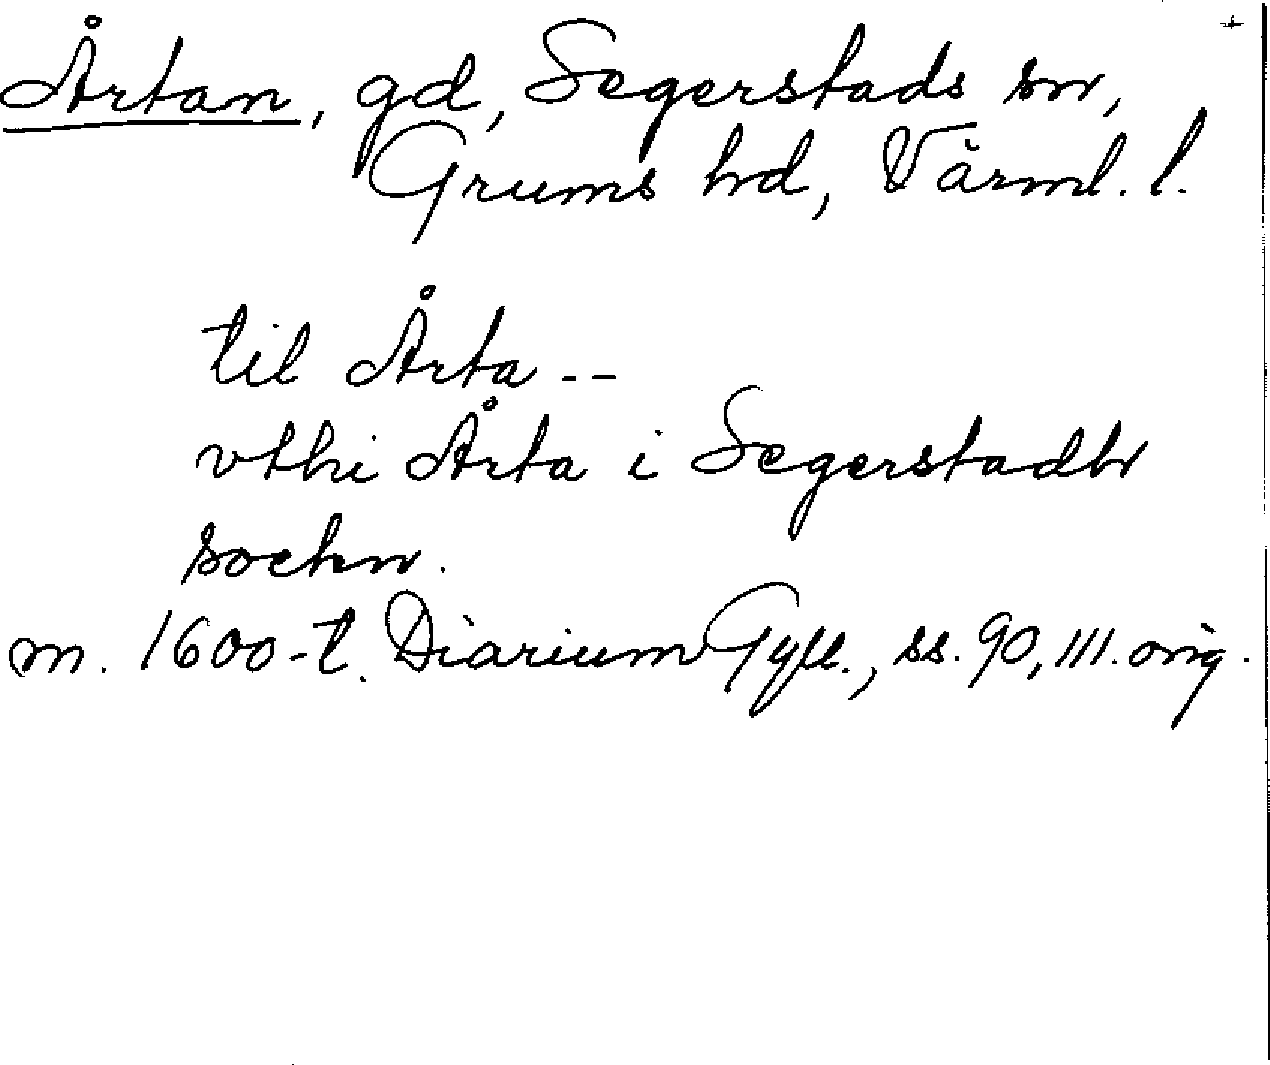 +
Årtan, gd, Segerstads sn,
Grums hd, Värml. l.
til Årta --
vthi Årta i Segerstadh
sochn.
m. 1600-t. Diarium Gyll., ss. 90, 111. orig.